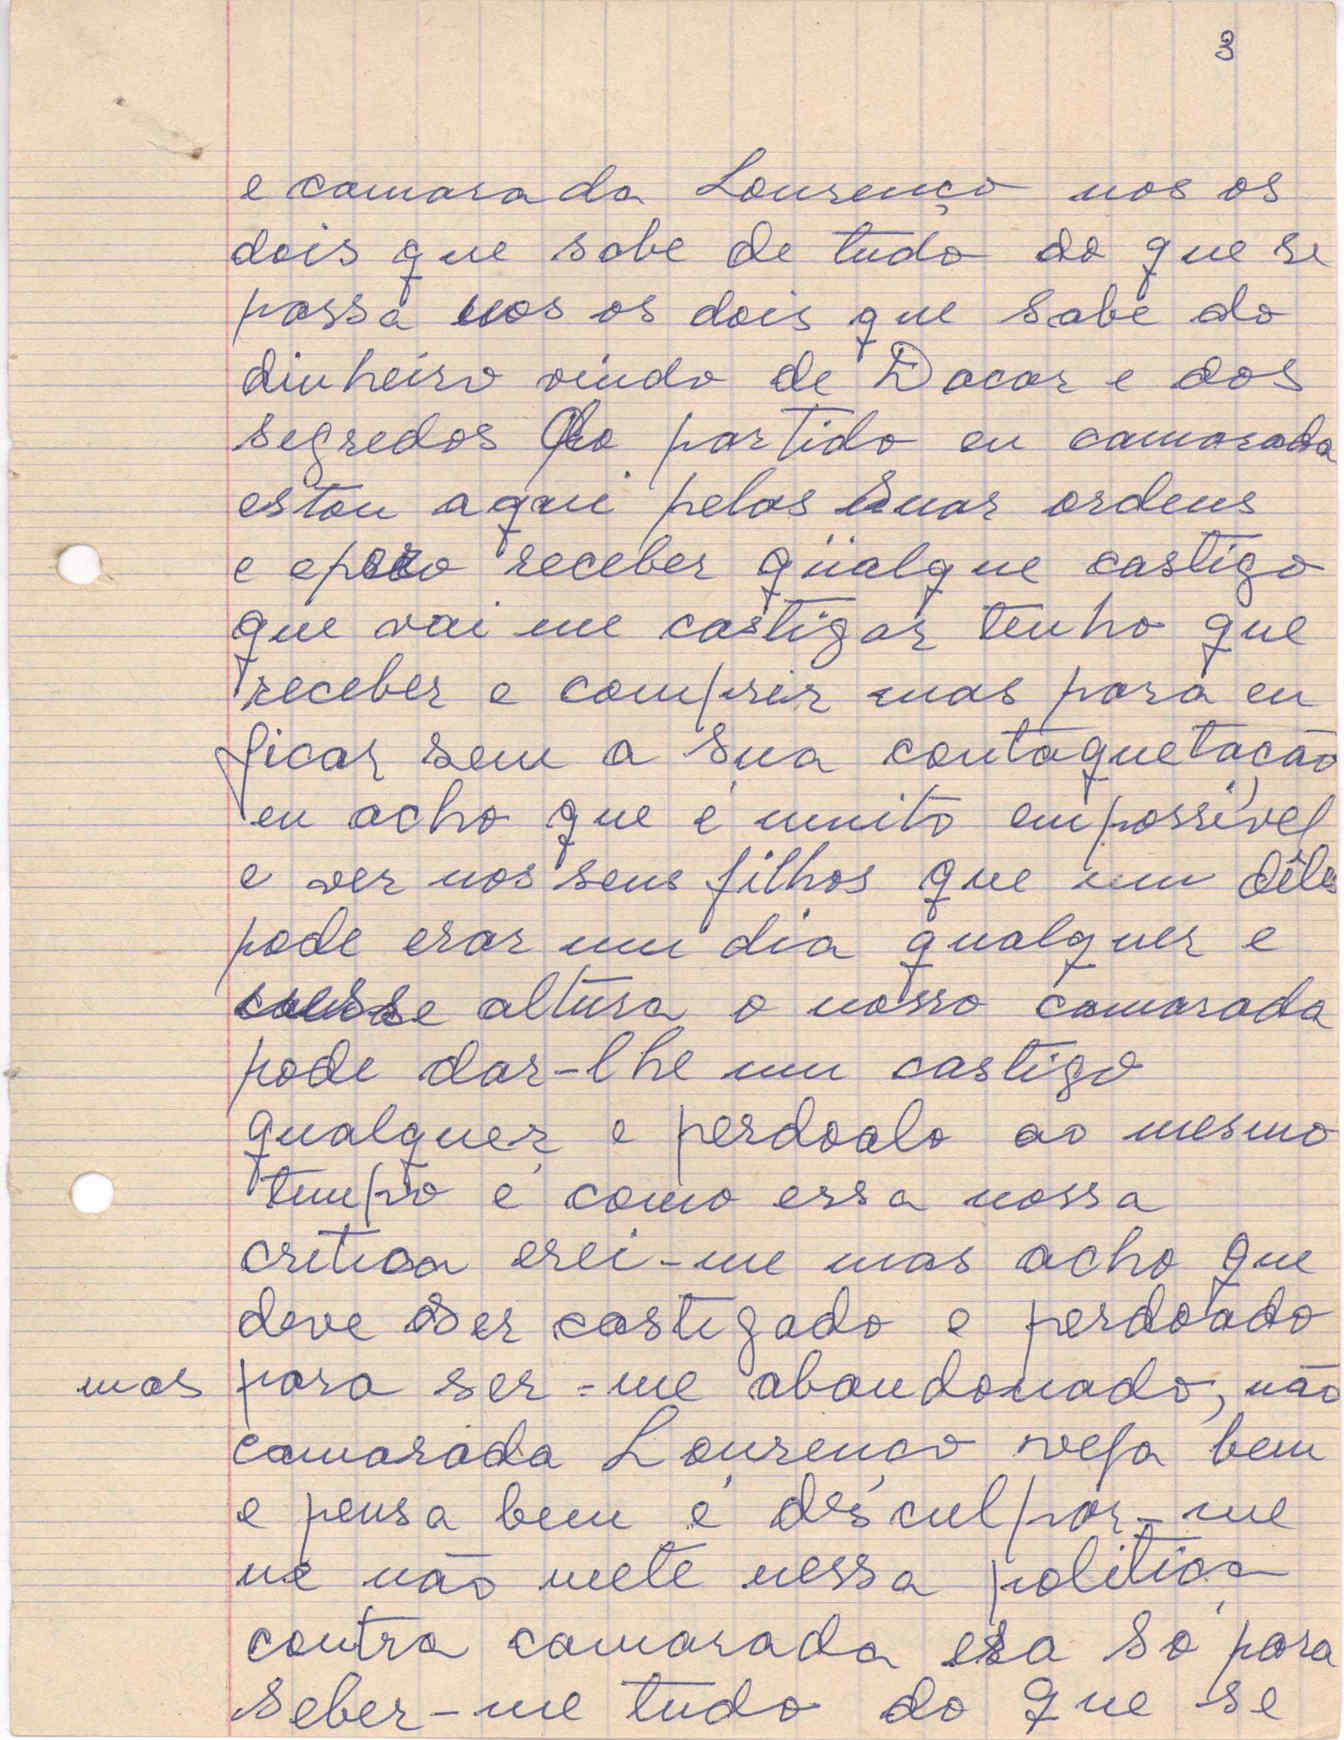 3
e camarada Lourenço nos os
dois que sabe de tudo do que se
passa nos os dois que sabe do
dinheiro vindo de Dacar e dos
segredos do partido eu camarada
estou aqui pelas suas ordens
e epero receber qüalque castigo
que vai me castigar tenho que
receber e comprir mas para eu
ficar sem a sua contaquetação
eu acho que é muito empossível
e ver nos seus filhos que um dêles
pode erar um dia qualquer e
altura o nosso camarada
pode dar-lhe um castigo
qualquer e perdoalo ao mesmo
tempo é como essa nossa
critica erei-me mas acho que
deve ser castigado e perdoado
mas para ser-me abandonado, não
camarada Lourenço veja bem
e pensa bem é désculpár-me
me não mete nessa politica
contra camarada era só para
seber-me tudo do que se